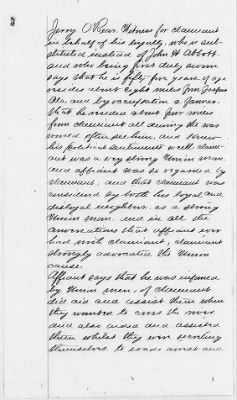 Jerry O'Rear, Witness for claimant
in behalf of his loyalty, who is sub-
stituted instead of John H Abbott
and who being first duly sworn
says that he is fifty five years of age
resides about eight miles from Jasper
Ala, and by occupation a farmer.
That he resided about four miles
from claimant all during the war
and often see him, and knew
his political sentiments well claim-
ant was a very strong Union man
and affiant was so regarded by
claimant, and that claimant was
considered by both his loyal and
disloyal neighbors, as a strong
Union man, and in all the
conversations that affiant ever
had with claimant, claimant
strongly advocated the Union
cause.
Affiant says that he was informed
by Union men, of claimant
did aid and assist them when
they wanted to cross the river
and also aided and assisted
them whilst they were secreting
themselves to avoid arrest and